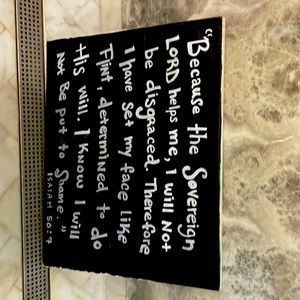 "Because the Sovereign
LORD helps me, I will Not
be disgraced. Therefore
I have set my face like
Flint, determined to do
His will. I know I will
Not Be put to Shame."
ISAIAH 50:7